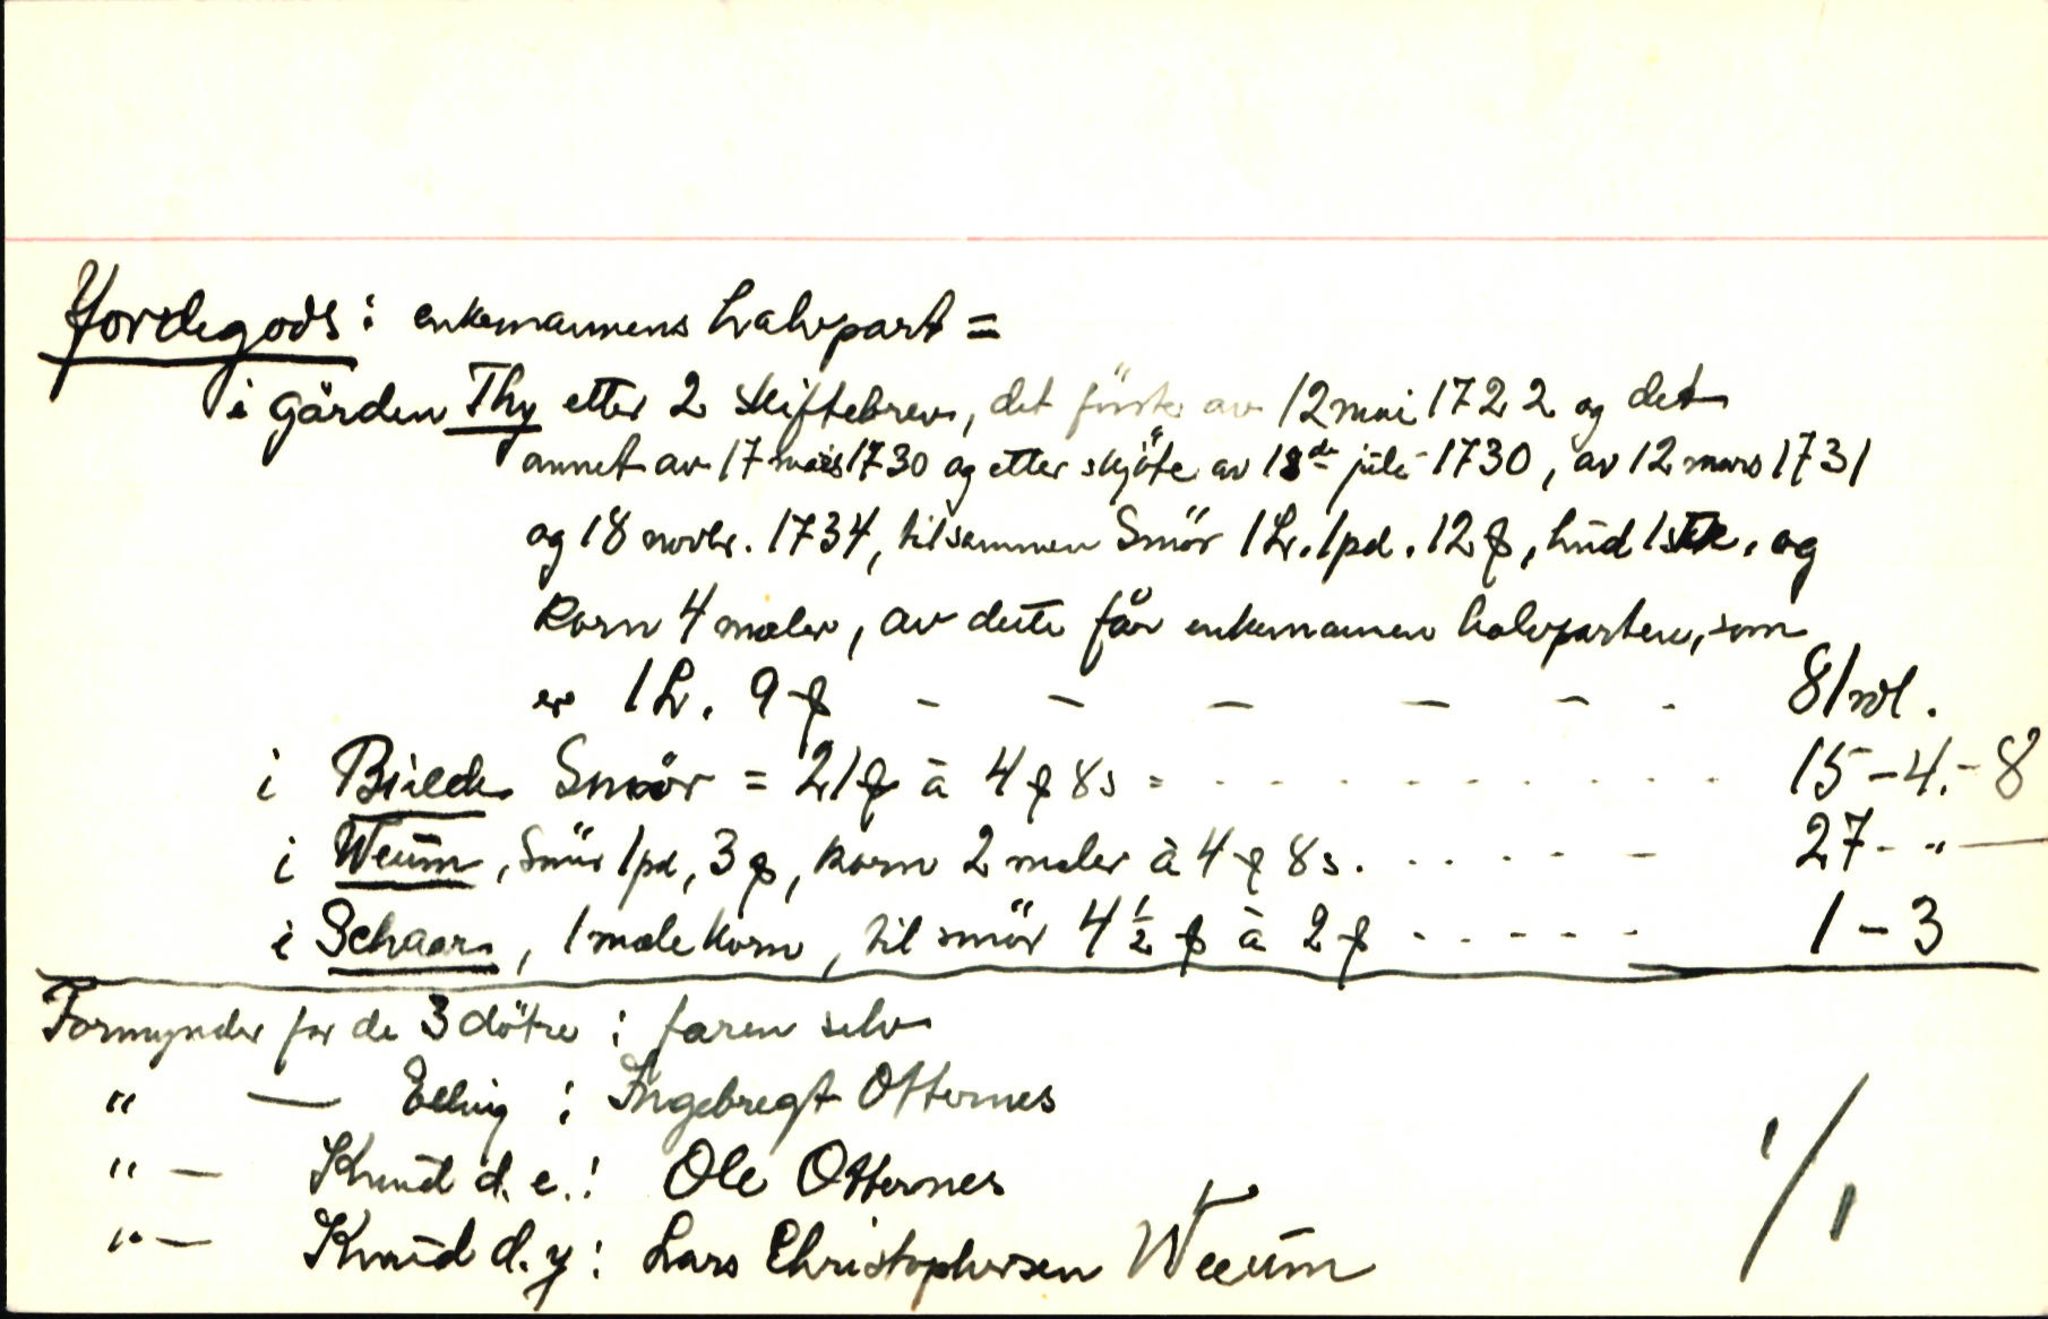 Jordegods: enkemannens halvpart =
i gården Thy etter 2 skiftebrev, det første av 12 mai 1722 og det
annet av 17 mars 1730 og etter skjöte av 18de juli 1730, av 12 mars 1731
og 18 novbr. 1734, tilsammen Smör 1 L. 1 pd. 12 ℔, hud 1 stk. og
korn 4 mæler, av dette får enkemannen halvparten, som
er 1 L. 9 ℔ - - - - - - 81 rdl.
i Bielde Smör = 21 ℔ à 4 ℔ 8 s = - - - - - - - - 15 - 4. - 8
i Weum, smör 1 pd, 3 ℔, korn 2 mæler à 4 ℔ 8 s. - - - - - - 27 - " -
i Schaar, 1 mæle korn, til smör 4 1/2 ℔ à 2 ℔ - - - - - - 1 - 3
Formynder for de 3 dötre : faren selv
" — Elling : Ingebregt Otternes
" — Knud d. e. : Ole Otternes
" — Knud d. y : Lars Christophersen Weeum
1/1